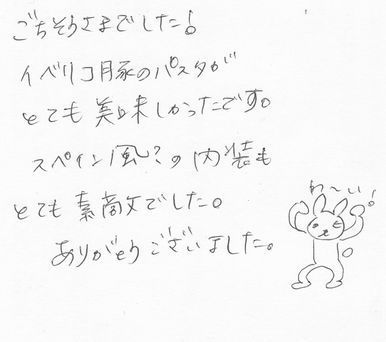 ごちそうさまでした！
イベリコ豚のパスタが
とても美味しかったです。
スペイン風？の内装も
とても素敵でした。
ありがとうございました。
わ〜い！